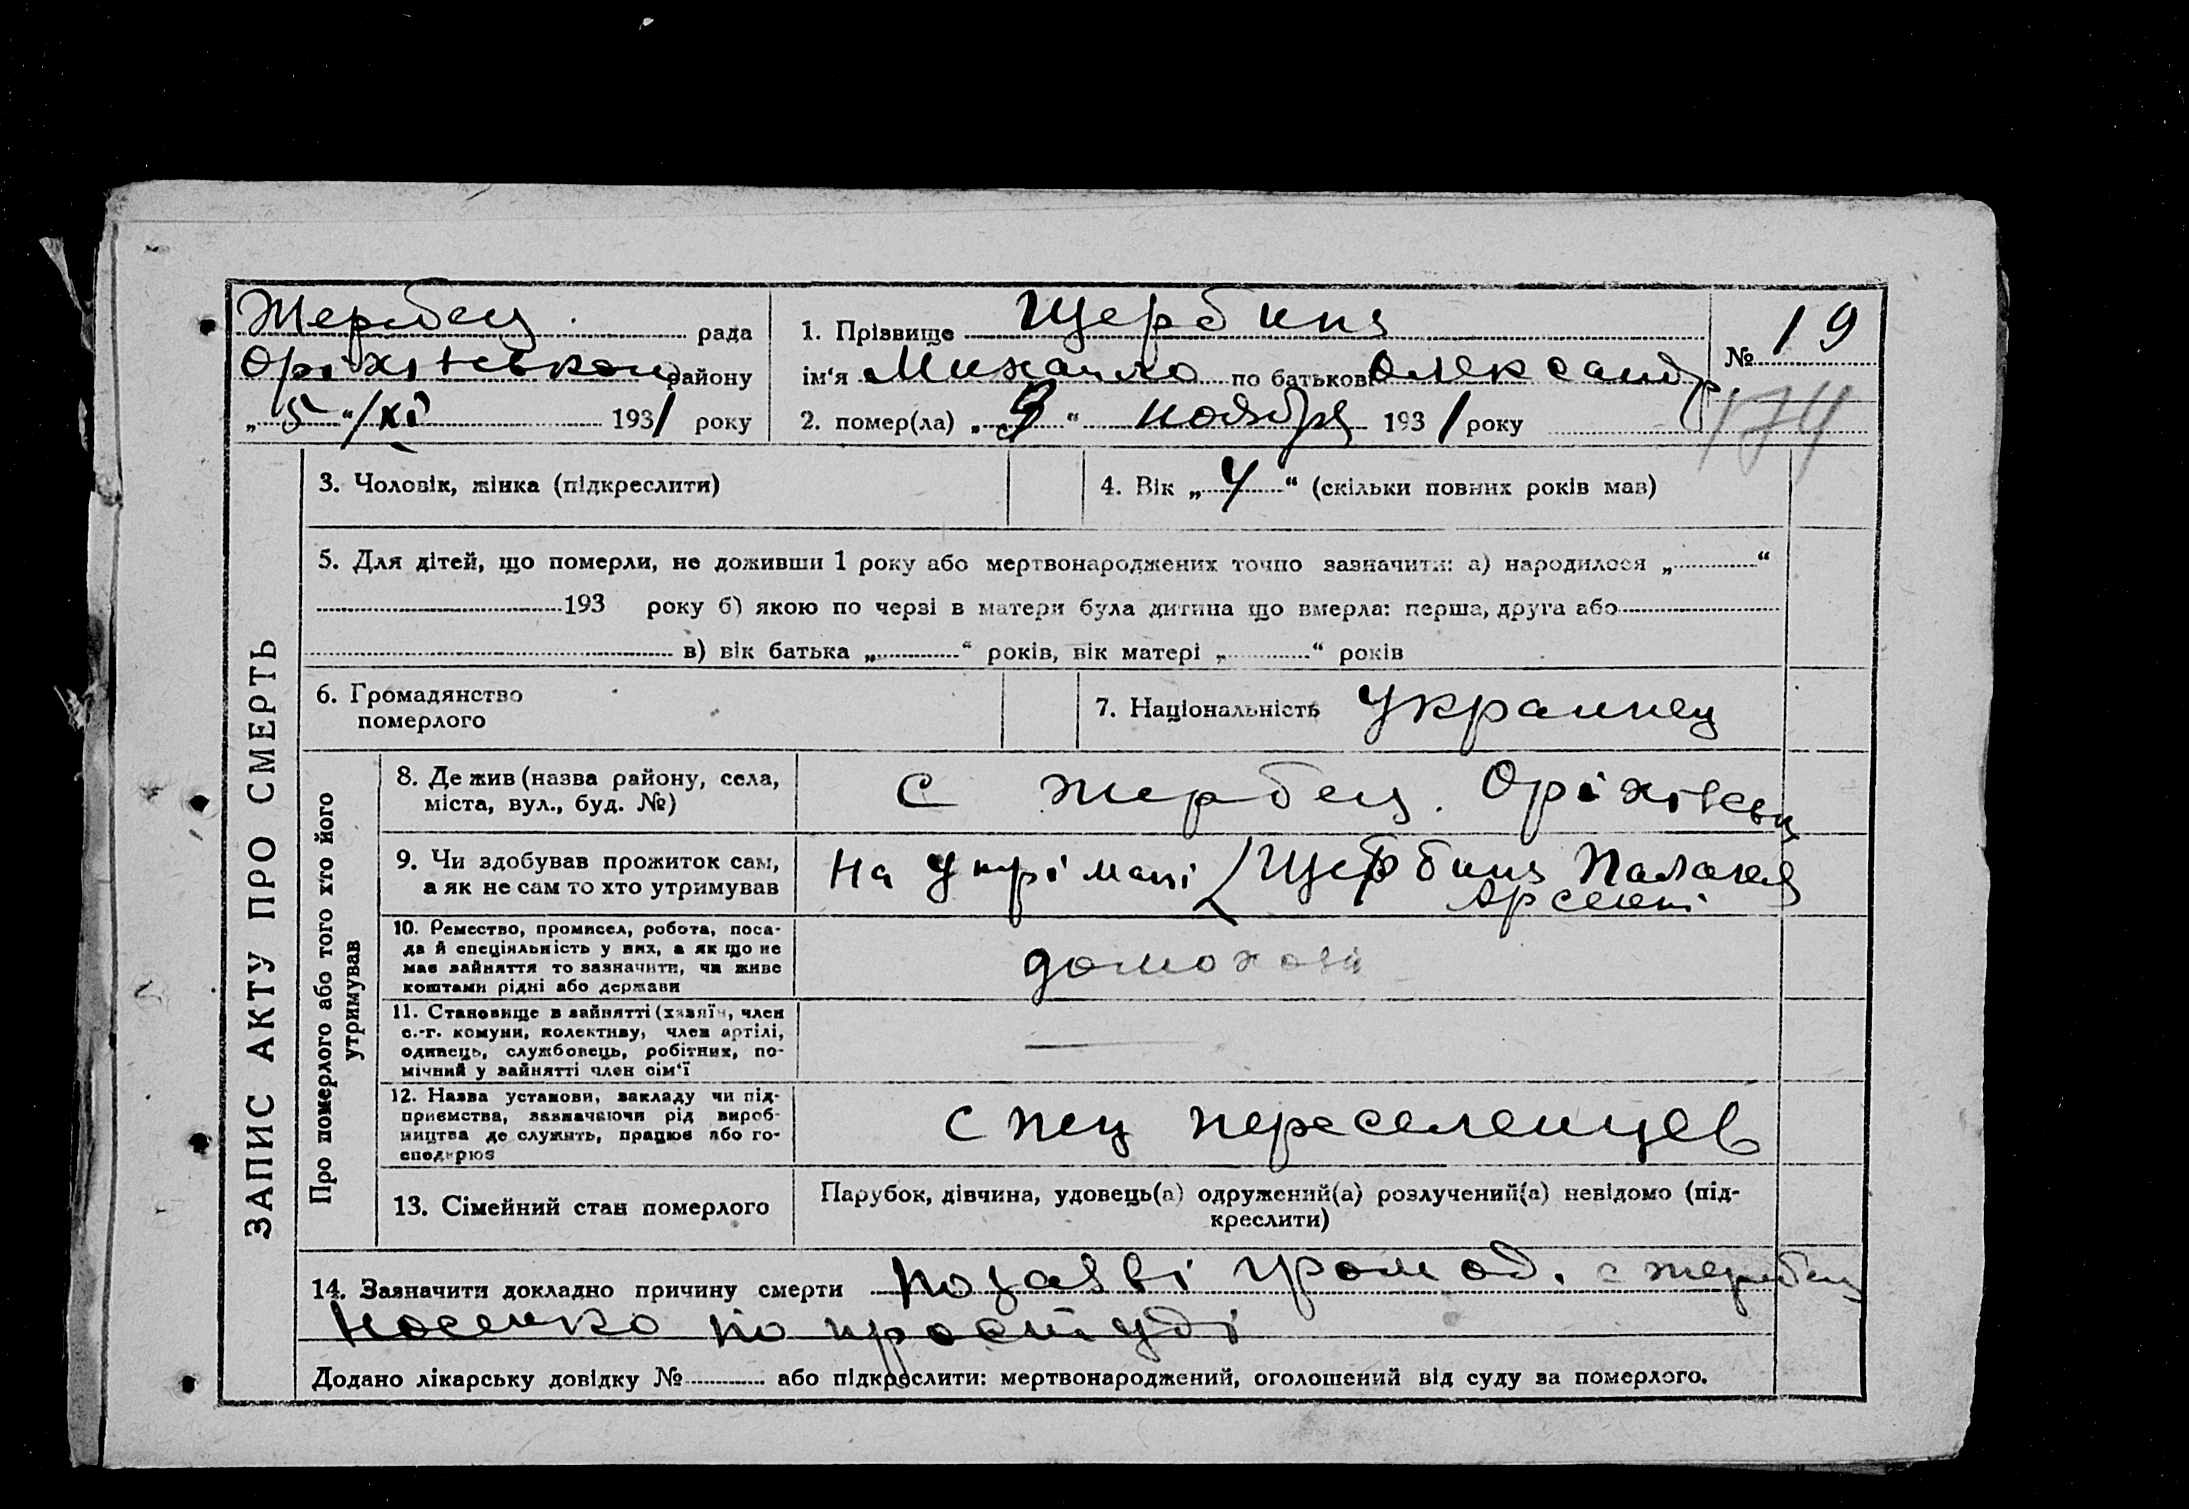 Жеребец рада
Оріхівського району
„5“/XI 1931 року
1. Прізвище Щербина
ім'я Михайло по батькові Олександр
2. помер(ла) „ “ ноября 1931 року
№ 19
174
ЗАПИС АКТУ ПРО СМЕРТЬ
3. Чоловік, жінка (підкреслити)
4. Вік „4“ (скільки повних років мав)
5. Для дітей, що померли, не доживши 1 року або мертвонароджених точно зазначити: а) народилося „ “
193 року б) якою по черзі в матери була дитина що вмерла: перша, друга або
в) вік батька „ “ років, вік матері „ “ років
6. Громадянство
померлого
7. Національність Украинец
Про померлого або того хто його
утримував
8. Де жив (назва району, села,
міста, вул., буд. №)
с Жеребец. Оріхівськ
9. Чи здобував прожиток сам,
а як не сам то хто утримував
на утрімані Щербина
Арсент
10. Ремество, промисел, робота, поса-
да й спеціяльність у них, а як що не
має зайняття то зазначити, чи живе
коштами рідні або держави
домохозя
11. Становище в зайнятті (хазяїн, член
с.-г. комуни, колективу, член артілі,
одинець, службовець, робітник, по-
мічний у зайнятті член сім'ї
12. Назва установи, закладу чи під-
приємства, зазначаючи рід вироб-
ництва де служить, працює або го-
сподарює
спец переселенцев
13. Сімейний стан померлого
Парубок, дівчина, удовець(а) одружений(а) розлучений(а) невідомо (під-
креслити)
14. Зазначити докладно причину смерти по заяві громад. с Жеребец
Носенко по простуді
Додано лікарську довідку № або підкреслити: мертвонароджений, оголошений від суду за померлого.